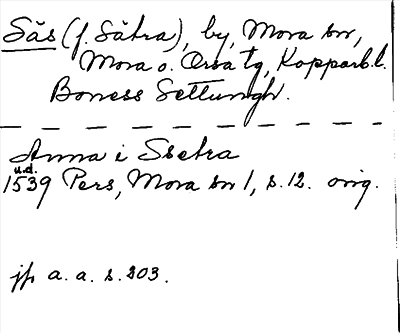 Säs (f. Sätra), by, Mora sn,
Mora o. Orsa tg, Kopparb.l.
Boness Settungh.
Anna i Ssetra
u.d.
1539 Pers, Mora sn 1, s. 12. orig.
jfr a. a. s. 203.